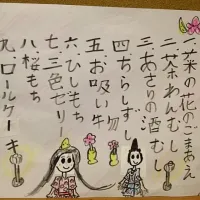 一、菜の花のごまあえ
二、茶わんむし
三、あさりの酒むし
四、ちらしずし
五、お吸い物
六、ひしもち
七、三色ゼリー
八、桜もち
九、ロールケーキ